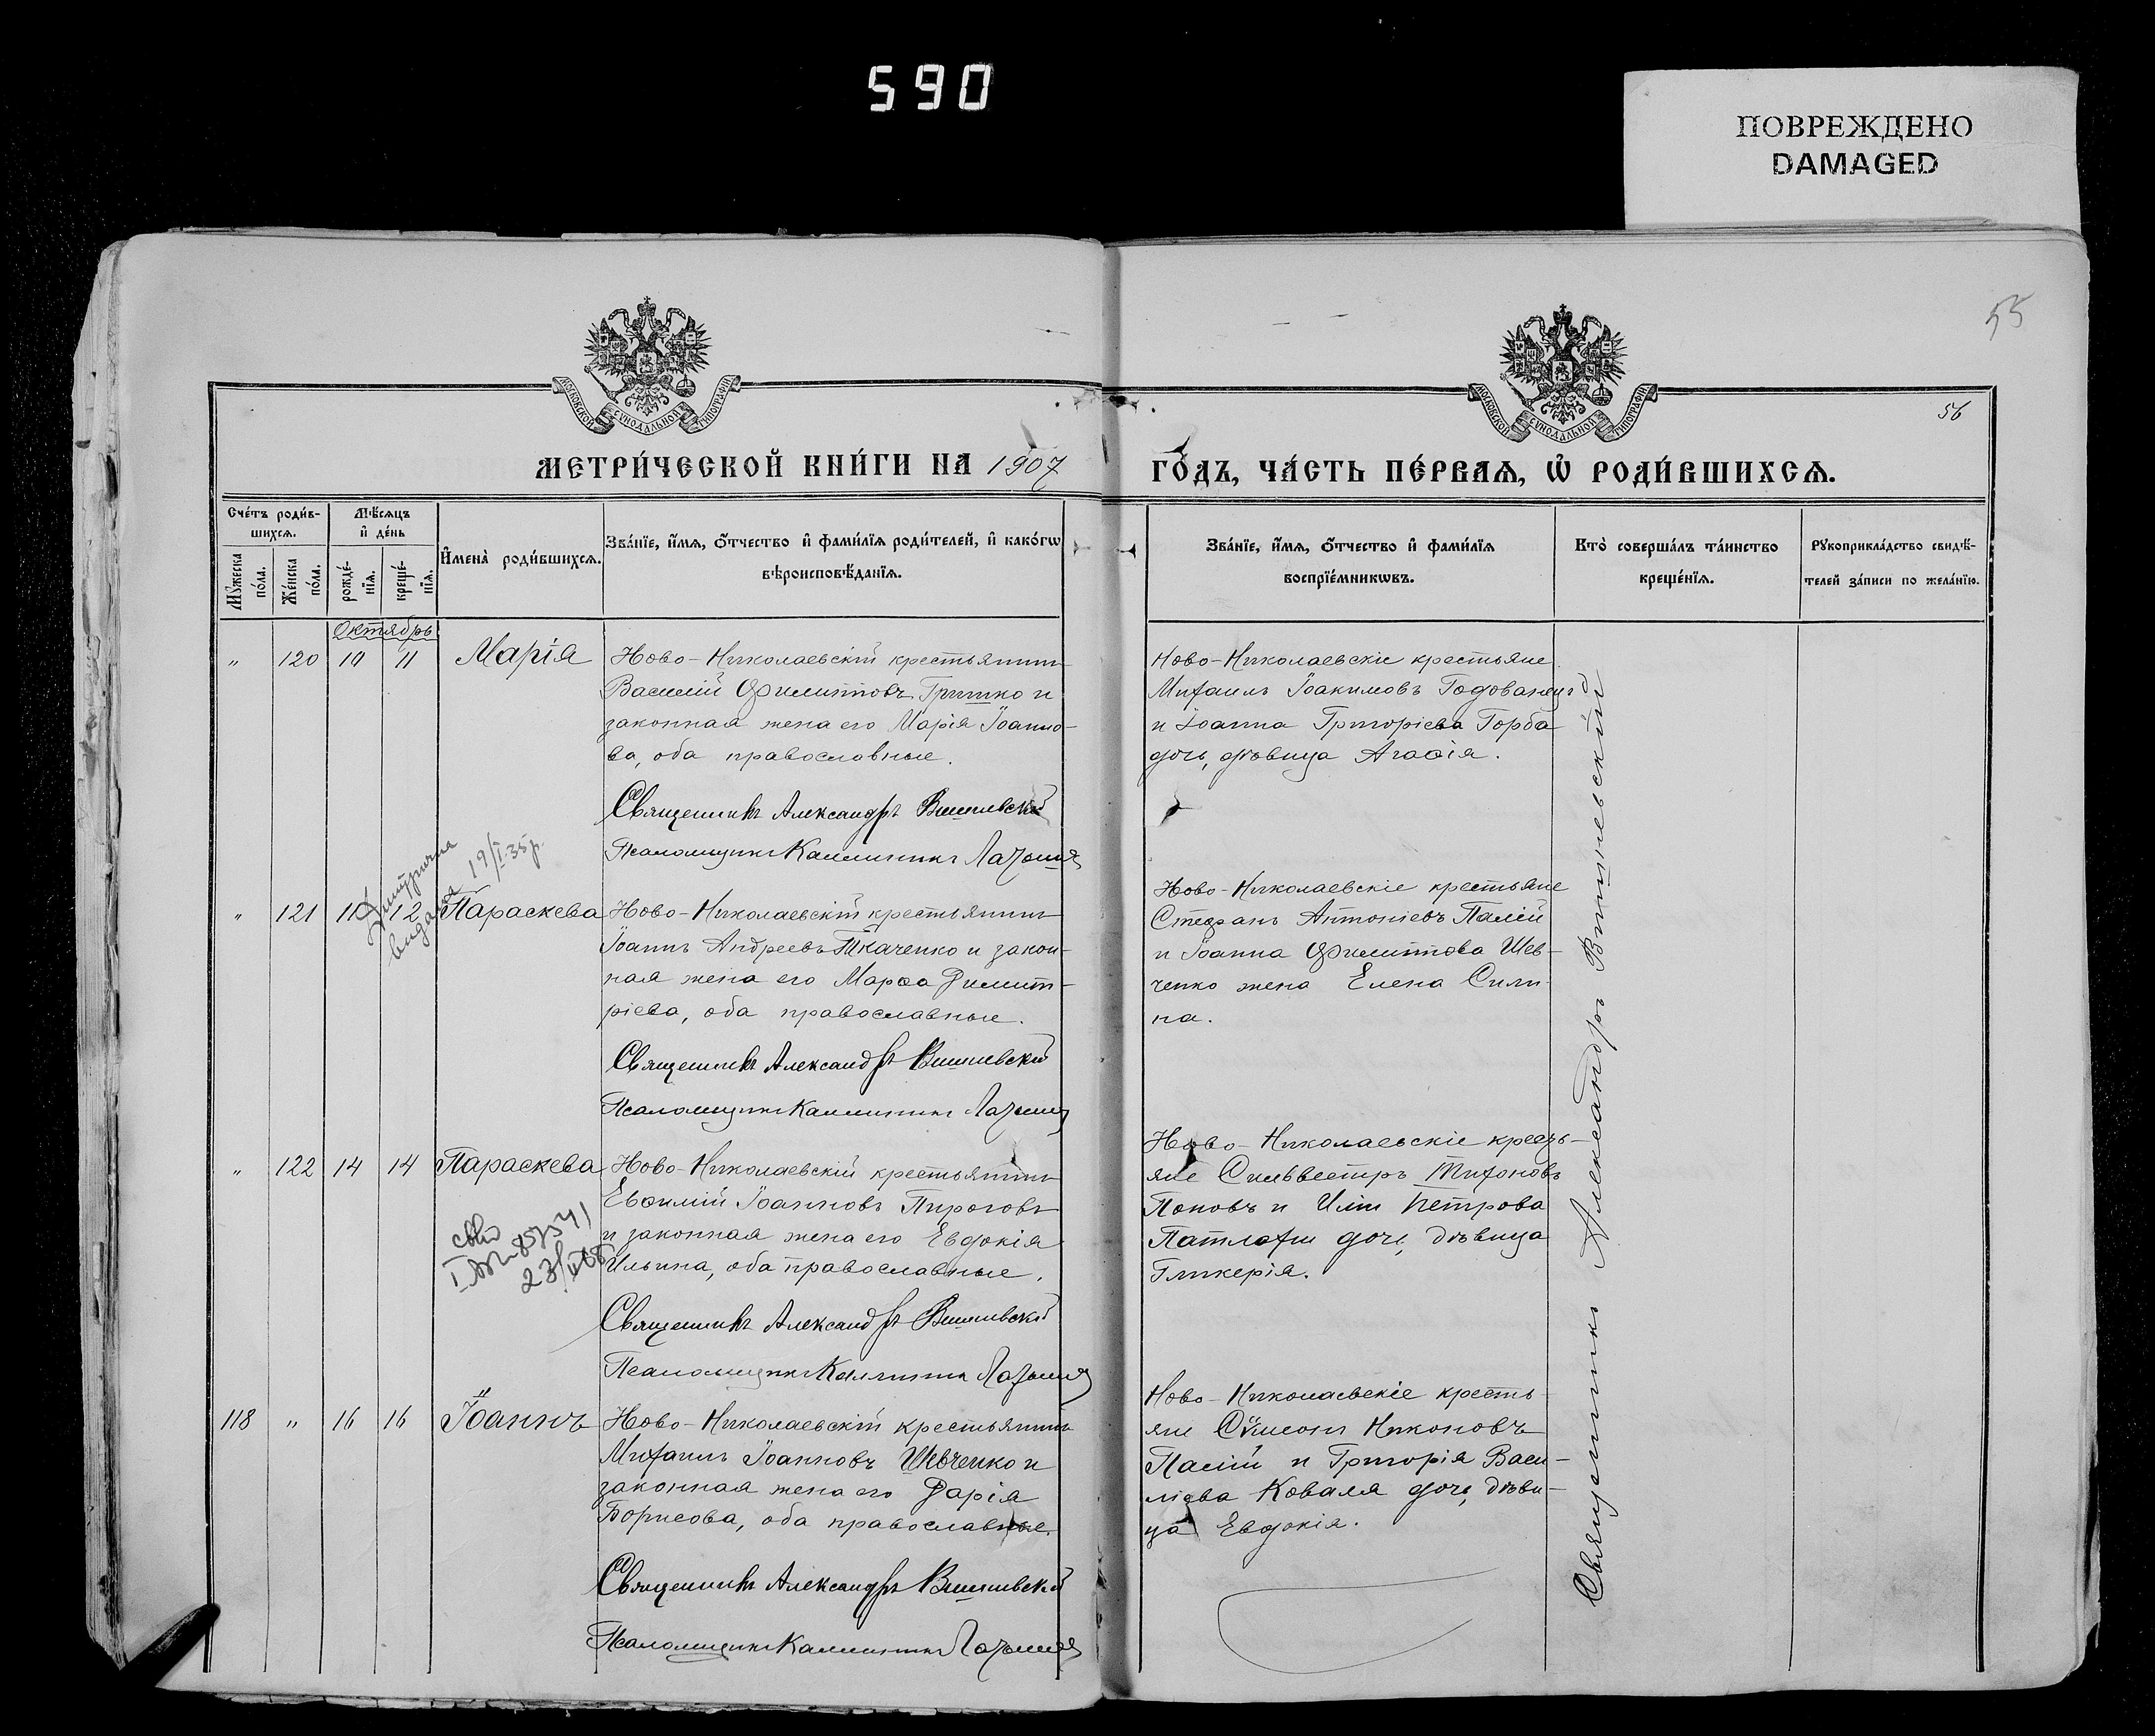 590
ПОВРЕЖДЕНО
DAMAGED
55
56
МОСКОВСКОЙ СѴНОДАЛЬНОЙ ТИПОГРАФІИ
МОСКОВСКОЙ СѴНОДАЛЬНОЙ ТИПОГРАФІИ
МЕТРИ́ЧЕСКОЙ КНИ́ГИ НА 1907
ГО́ДЪ, ЧА́СТЬ ПЕ́РВАЯ, Ѡ РОДИ́ВШИХСЯ.
Сче́тъ роди́в-
шихся.
Мꙋ́жеска по́ла.
Же́нска по́ла.
Мѣ́сяцъ
и҆ де́нь
рожде́-нїя.
креще́-нїя.
И҆мена̀ роди́вшихся.
Зва́нїе, и҆́мя, ѻ҆́тчество и҆ фами́лїя роди́телей, и҆ како́гѡ
вѣроисповѣ́данїя.
Зва́нїе, и҆́мя, ѻ҆́тчество и҆ фами́лїя
воспрїе́мникѡвъ.
Кто̀ соверша́лъ та́инство
креще́нїя.
Рꙋкоприкла́дство свидѣ́-
телей за́писи по жела́нїю.
Октябрь
" 120 10 11 Марія
Ново-Николаевскій крестьянинъ
Василій Филипповъ Гришко и
законная жена его Марія Іоанно-
ва, оба православные.
Священникъ Александръ Вишневскій
Псаломщикъ Каллиникъ
Ново-Николаевскіе крестьяне
Михаилъ Іоакимовъ Годованецъ
и Іоанна Григоріева Горба
дочь, дѣвица Агафія.
видана 19/I 35 р.
" 121 11 12 Параскева
Ново-Николаевскій крестьянинъ
Іоаннъ Андреевъ Ткаченко и закон-
ная жена его Марфа Димит-
ріева, оба православные.
Священникъ Александръ Вишневскій
Псаломщикъ Каллиникъ
Ново-Николаевскіе крестьяне
Стефанъ Антоніевъ Палій
и Іоанна Филиппова Шев-
ченко жена Елена Сили-
на.
" 122 14 14 Параскева
Ново-Николаевскій крестьянинъ
Евфимій Іоанновъ Пироговъ
и законная жена его Евдокія
Ильина, оба православные.
Священникъ Александръ Вишневскій
Псаломщикъ Каллиникъ
Ново-Николаевскіе кресть-
яне Сильвестръ Тихоновъ
Поповъ и Иліи Петрова
дочь, дѣвица
Гликерія.
118 " 16 16 Іоаннъ
Ново-Николаевскій крестьянинъ
Михаилъ Іоанновъ Шевченко и
законная жена его Дарія
Борисова, оба православные.
Священникъ Александръ Вишневскій
Псаломщикъ Каллиникъ
Ново-Николаевскіе кресть-
яне Сѵмеонъ Никоновъ
Палій и Григорія Васи-
ліева Коваля дочь, дѣви-
ца Евдокія.
Священникъ Александръ Вишневскій